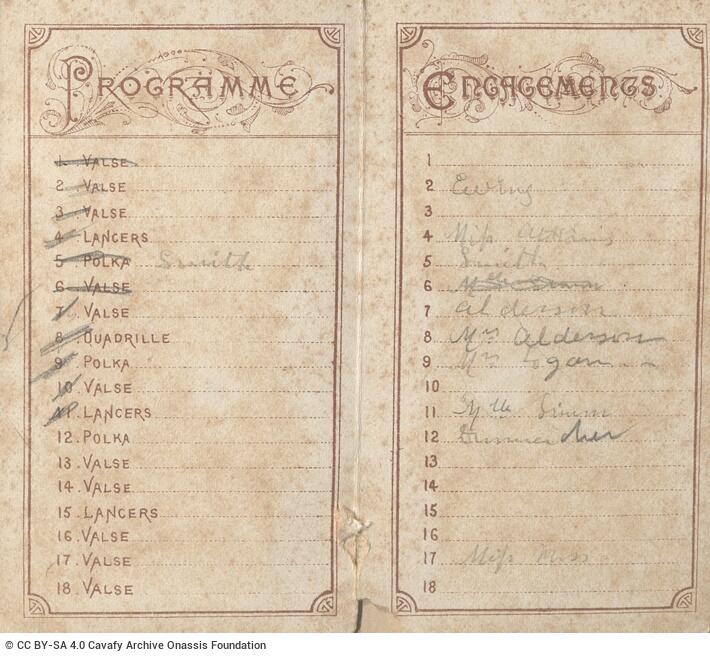 PROGRAMME
1. VALSE
2 VALSE
3. VALSE
4. LANCERS
5. POLKA Smith
6. VALSE
7. VALSE
8. QUADRILLE
9. POLKA
10. VALSE
11. LANCERS
12. POLKA
13. VALSE
14. VALSE
15. LANCERS
16. VALSE
17. VALSE
18. VALSE
ENGAGEMENTS
1
2 Ewing
3
4 Miss
5 Smith
6
7 Alderson
8 Mrs Alderson
9 Mrs
10
11 Mlle
12
13
14
15
16
17 Miss
18
© CC BY-SA 4.0 Cavafy Archive Onassis Foundation